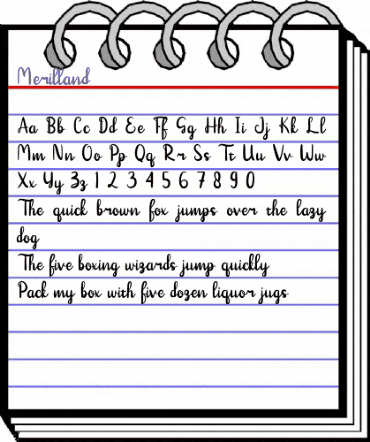 Merilland
Aa Bb Cc Dd Ee Ff Gg Hh Ii Jj Kk Ll
Mm Nn Oo Pp Qq Rr Ss Tt Uu Vv Ww
Xx Yy Zz 1 2 3 4 5 6 7 8 9 0
The quick brown fox jumps over the lazy
dog
The five boxing wizards jump quickly
Pack my box with five dozen liquor jugs